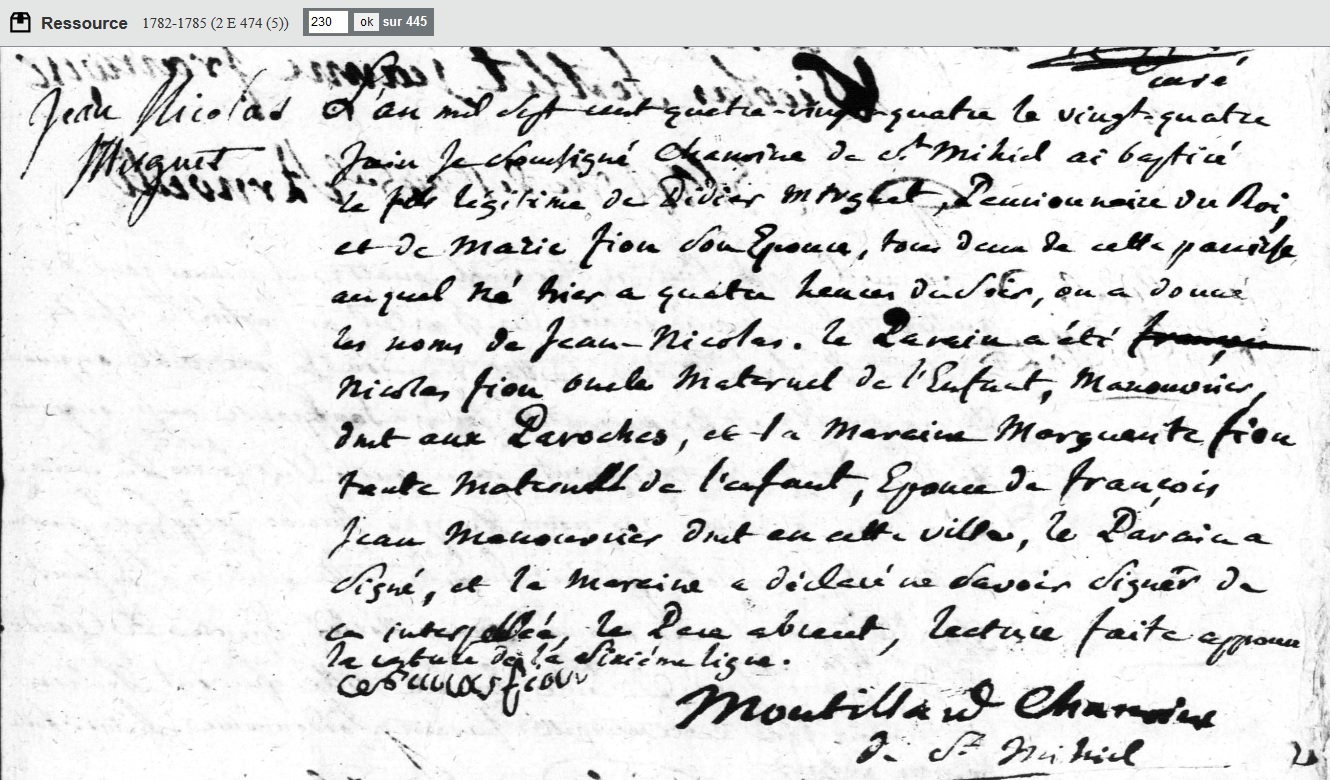 Ressource 1782-1785 (2 E 474 (5)) 230 ok sur 445
curé
Jean Nicolas
L'an mil sept cent quatre-vingt-quatre le vingt-quatre
Juin Je soussigné Chanoine de St Mihiel ai baptisé
le fils légitime de Didier Mirguet, Pensionnaire du Roi,
Mirguet
et de Marie fion son Epouse, tous deux de cette paroisse
auquel né hier a quatre heures du soir, on a donné
les noms de Jean-Nicolas. le Parain a été françois
Nicolas fion oncle Maternel de l'Enfant, Manouvrier,
dmt aux Paroches, et la Maraine Marguerite fion
tante Maternelle de l'enfant, Epouse de françois
Jean Manouvrier dmt en cette ville, le Parain a
signé, et la Maraine a déclaré ne savoir signer de
ce interpellée, le Pere absent, lecture faite approuvé
la rature de la sixième ligne.
fion
Montillard Chanoine
de St Mihiel